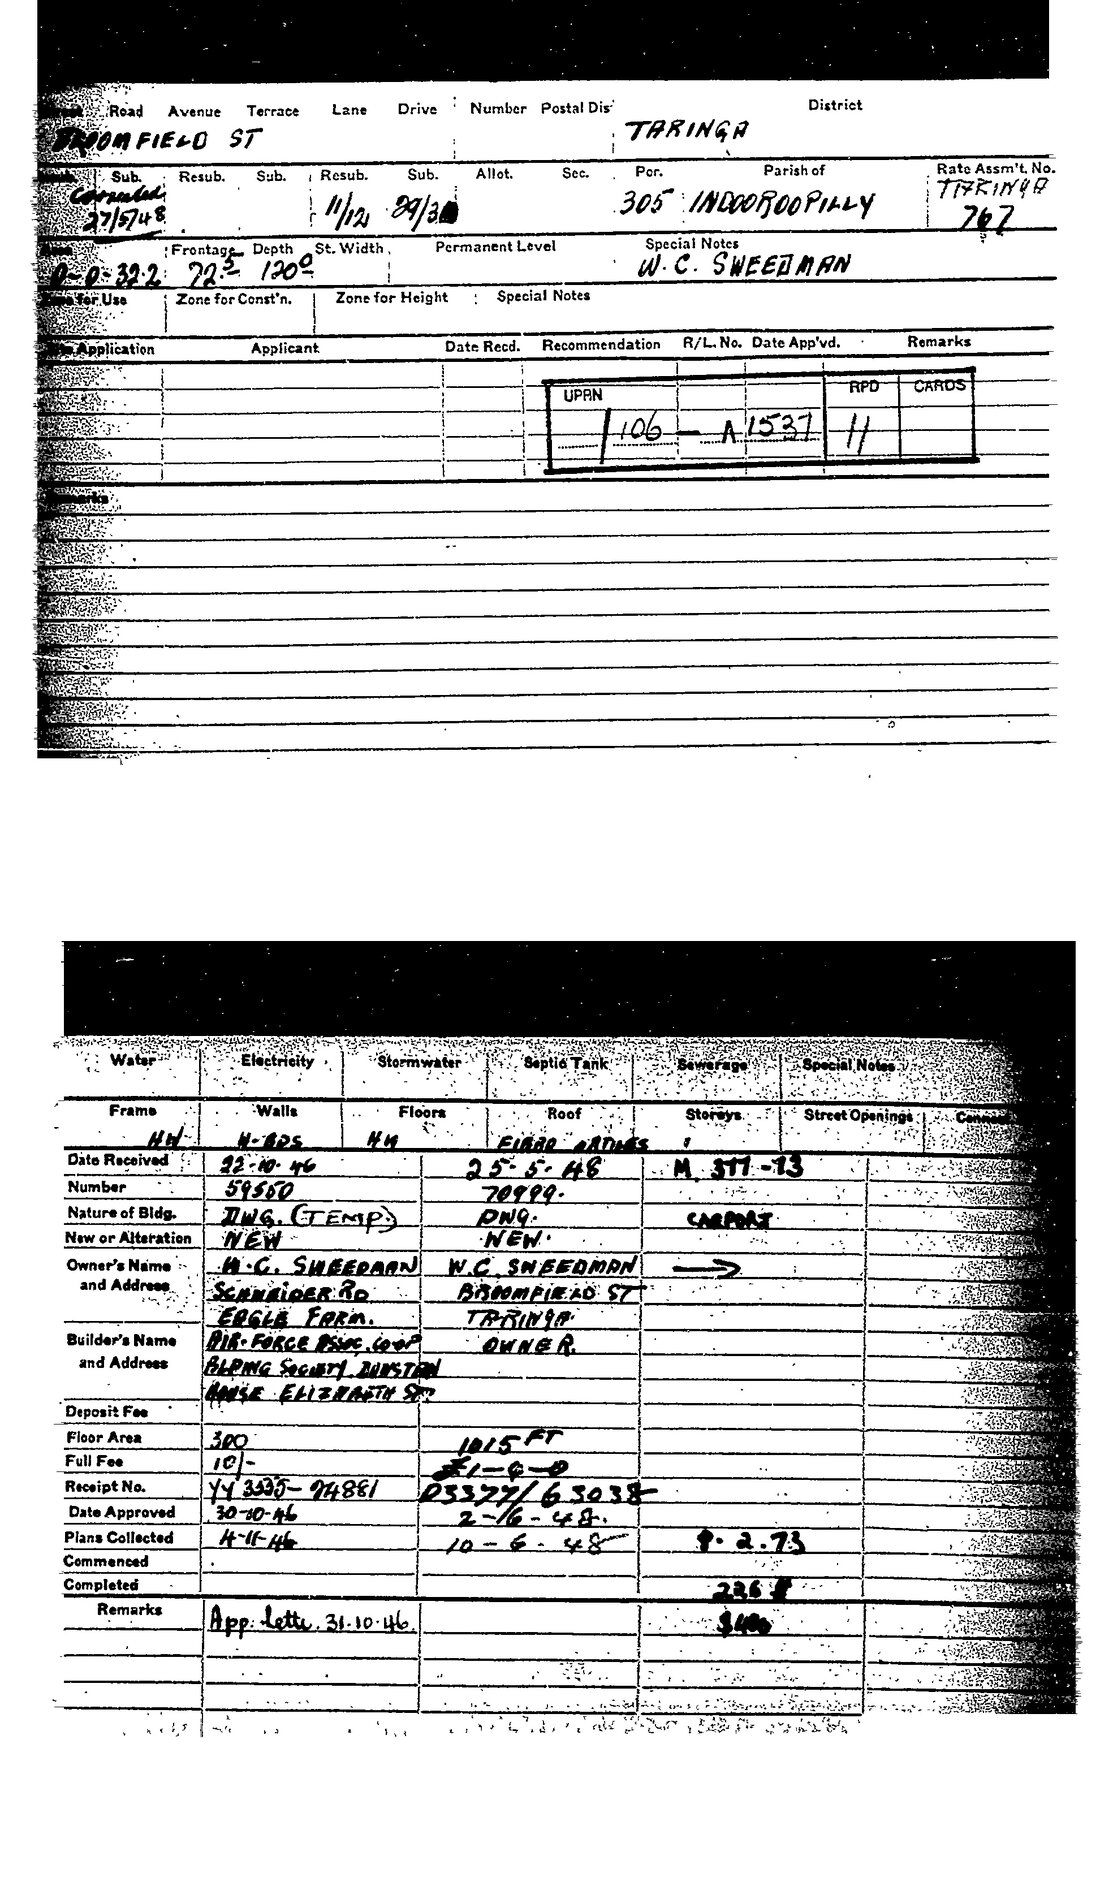 Road Avenue Terrace Lane Drive Number Postal Dis District
BROOMFIELD ST TARINGA
Sub. Resub. Sub. Resub. Sub. Allot. Sec. Por. Parish of Rate Assm't. No.
Corrected 11/12 29/3 305 INDOOROOPILLY TARINGA
27/5/48 767
Frontage Depth St. Width Permanent Level Special Notes
0-0-32.2 72.5 120.0 W. C. SWEEDMAN
Zone for Use Zone for Const'n. Zone for Height Special Notes
Application Applicant Date Recd. Recommendation R/L. No. Date App'vd. Remarks
UPRN RPD CARDS
/106 — A 1537 //
Remarks
Water Electricity Stormwater Septic Tank Sewerage Special Notes
Frame Walls Floors Roof Storeys Street Openings
HW H-BDS HW FIBRO 1
Date Received 22-10-46 25-5-48 M. 377-73
Number 59550 70999.
Nature of Bldg. DWG. (TEMP) DWG. CARPORT
New or Alteration NEW NEW.
Owner's Name W.C. SWEEDMAN W.C. SWEEDMAN →
and Address SCHNEIDER RD BROOMFIELD ST
EAGLE FARM. TARINGA.
Builder's Name AIR-FORCE ASSOC. CO-OP OWNER.
and Address BLDING SOCIETY DUNSTAN
HOUSE ELIZABETH ST.
Deposit Fee
Floor Area 300 1015 FT
Full Fee 10/- £1-6-0
Receipt No. YY 3535-74881 D3377/63038
Date Approved 30-10-46 2-6-48.
Plans Collected 4-11-46 10-6-48 9.2.73
Commenced
Completed 226
Remarks App. lette. 31.10.46. $400